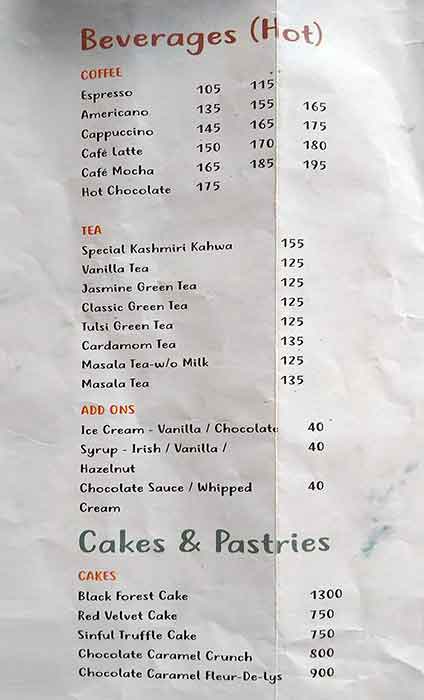 Beverages (Hot)
COFFEE
Espresso 105 115
Americano 135 155 165
Cappuccino 145 165 175
Café Latte 150 170 180
Café Mocha 165 185 195
Hot Chocolate 175
TEA
Special Kashmiri Kahwa 155
Vanilla Tea 125
Jasmine Green Tea 125
Classic Green Tea 125
Tulsi Green Tea 125
Cardamom Tea 135
Masala Tea-w/o Milk 125
Masala Tea 135
ADD ONS
Ice Cream - Vanilla / Chocolate 40
Syrup - Irish / Vanilla / 40
Hazelnut
Chocolate Sauce / Whipped 40
Cream
Cakes & Pastries
CAKES
Black Forest Cake 1300
Red Velvet Cake 750
Sinful Truffle Cake 750
Chocolate Caramel Crunch 800
Chocolate Caramel Fleur-De-Lys 900